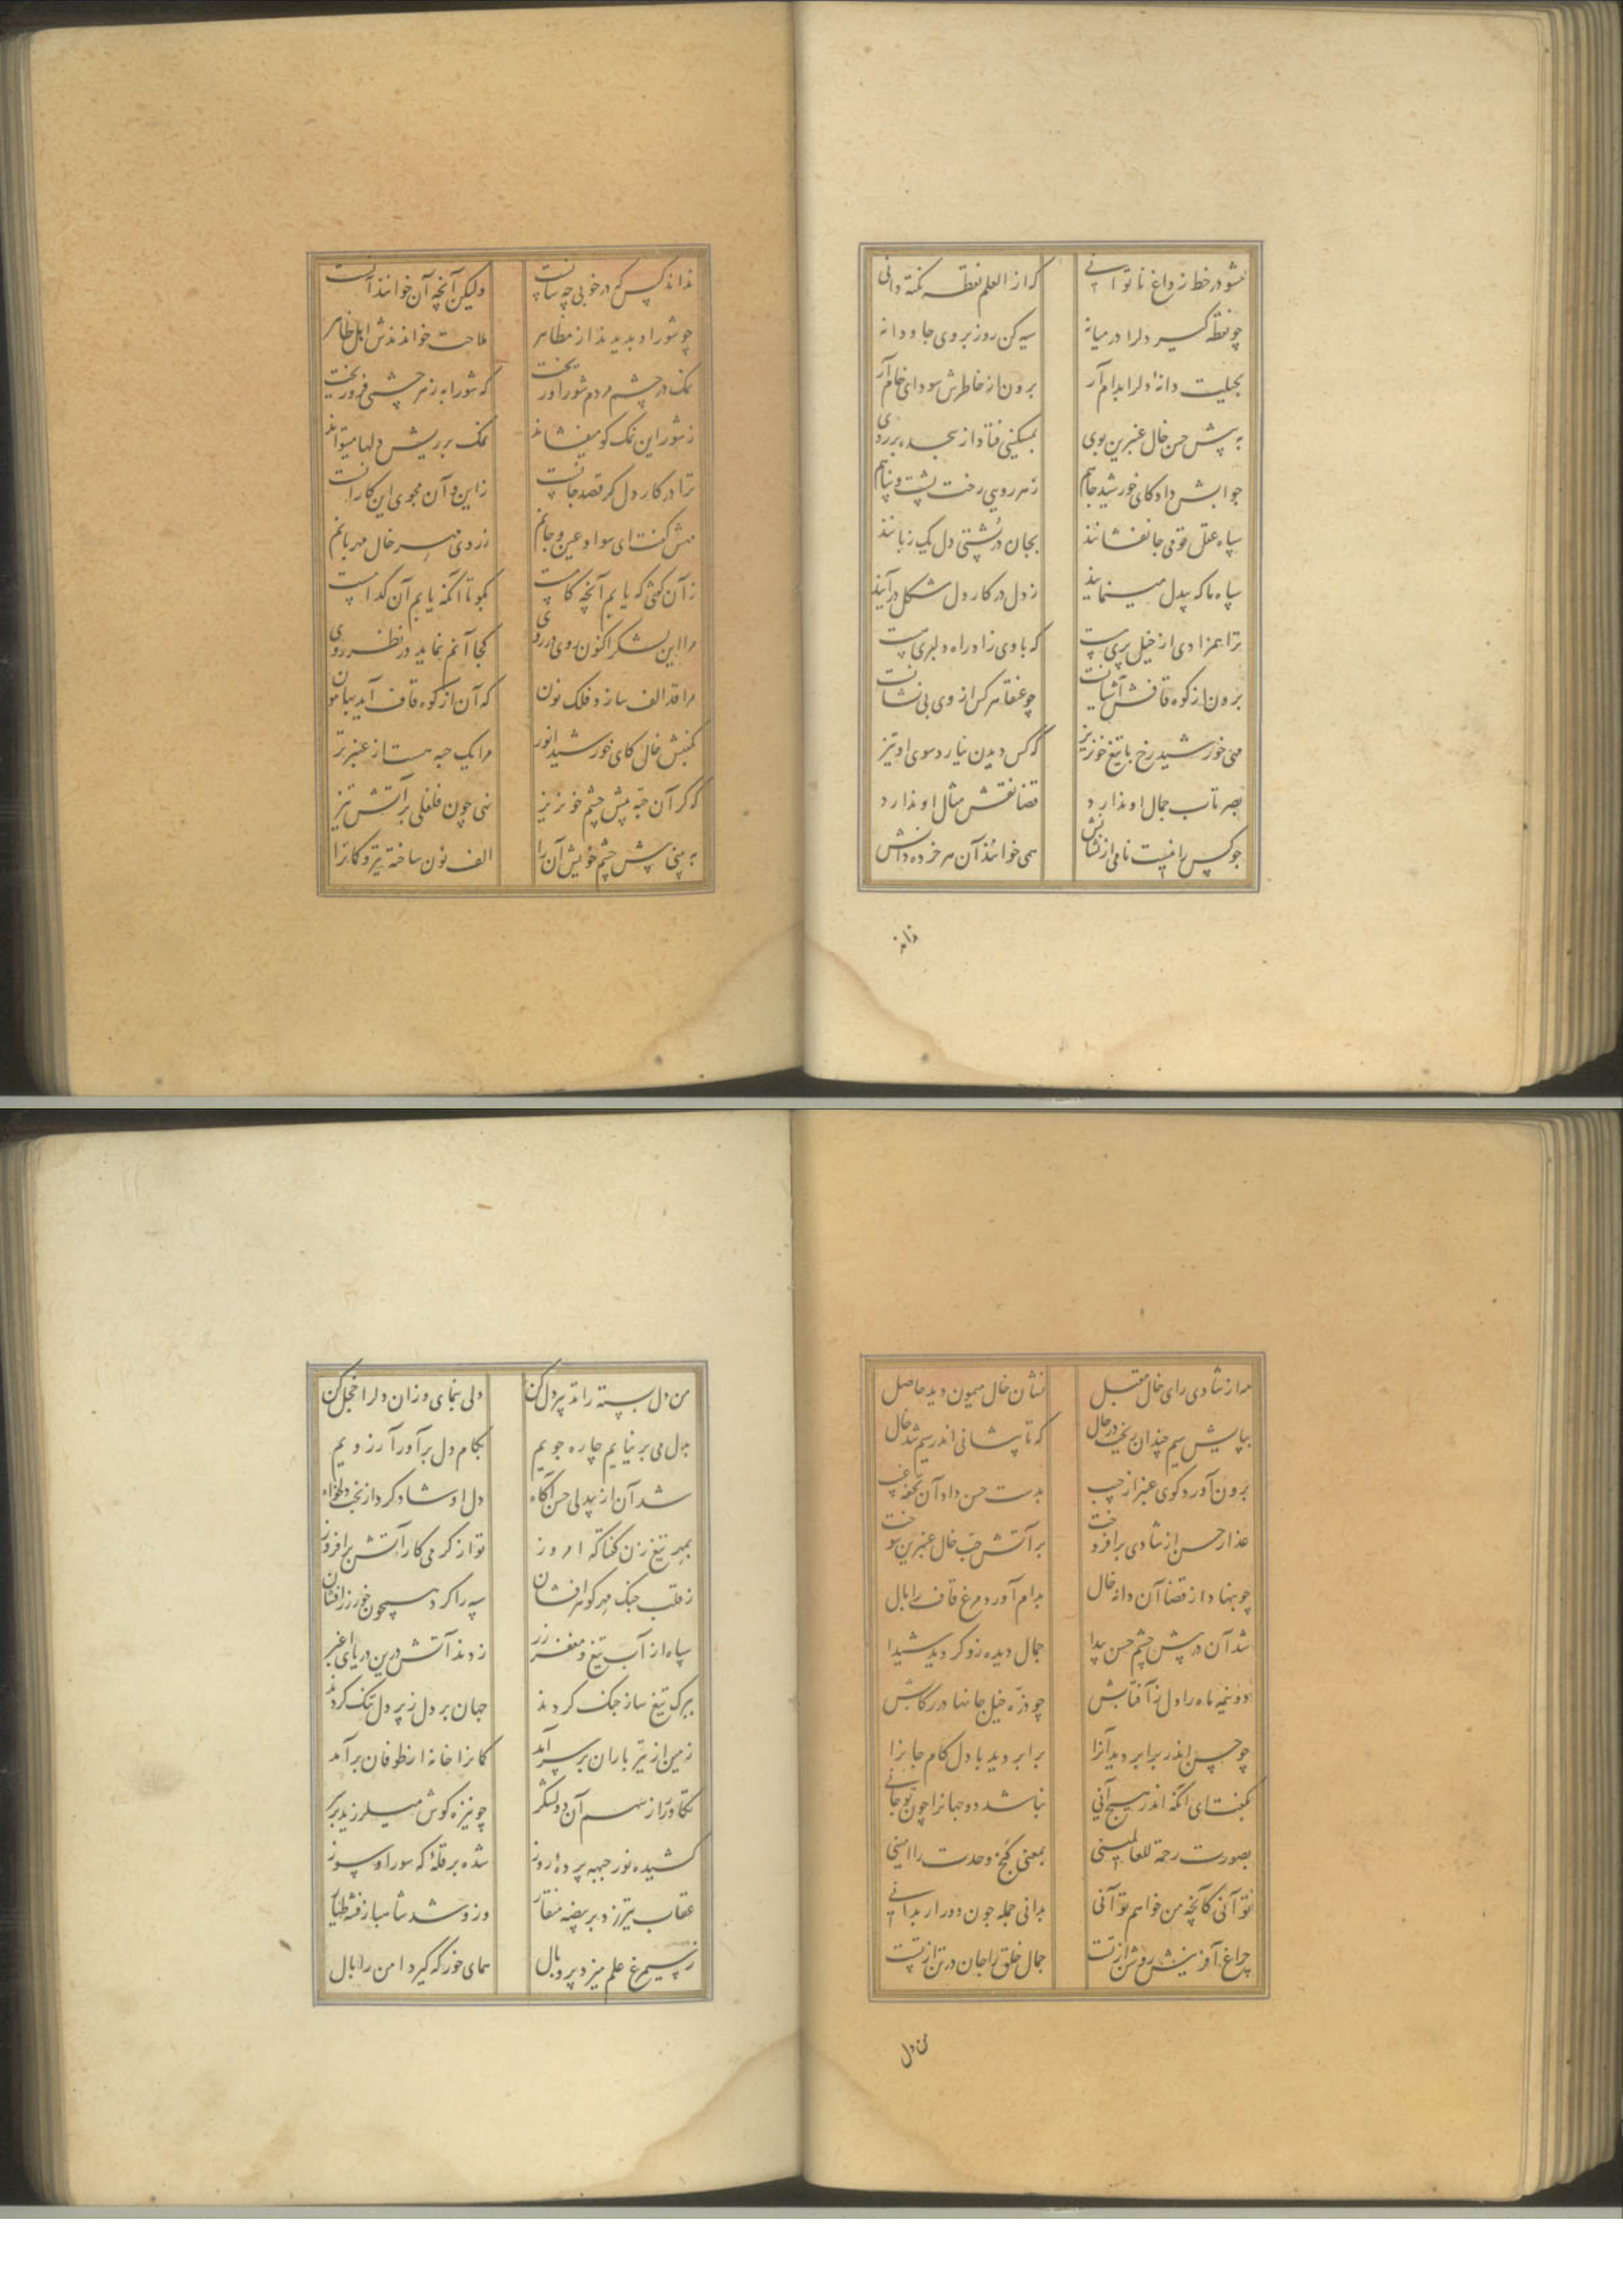 مشو در خط ز داغ ناتوانی
که از العلم نقطه نکته دانی
چو نقطه گیر دلرا در میانه
سیه کن روز بروی جاودانه
بحیلت دانهٔ دلرا بدام آر
برون از خاطرش سودای خام آر
به پیش حسن خال عنبرین بوی
بمسکینی فتاد از سجده بر روی
جوابش داد کای خورشید جاهم
ز مهر رویی رخت پشت و پناهم
سپاه عقل قومی جانفشانند
بجان در پشتی دل یک زبانند
سپاه ما که بیدل مینمایند
ز دل در کار دل مشکل در آیند
ترا همزادی از خیل پریست
که با وی زاد راه دلبریست
برون از کوه قافش آشیانست
چو عنقا هر کس از وی بی نشانست
مهی خورشید رخ با تیغ خونریز
که کس دیدن نیارد سوی او تیز
بصر تاب جمال او ندارد
قضا نقش مثال او ندارد
چو کس را نیست نامی از نشانش
همی خوانند آن هر خرده دانش
نداند
نداند کس که در خوبی چه سانست
ولیکن آنچه آن خوانند آنست
چو شور او بدیدند از مظاهر
ملاحت خواندندش اهل ظاهر
نمک در چشم مردم شور او ریخت
که شورابه ز هر چشمی فرو ریخت
ز شور این نمک کو میفشاند
نمک بر ریش دلها میتواند
ترا در کار دل گر قصد جانست
ز این و آن مجوی این کار آنست
مهش گفت ای سواد عین و جانم
ز روی مهر خال مهربانم
ز آن گفتی که یابم آنچه کامست
بگو تا آنکه یابم آن کدامست
مرا این لشکر اکنون روی در روی
کجا آنم نماید در نظر روی
مرا قد الف سازد فلک نون
که آن از کوه قاف آید بهامون
بگفتش خال کای خورشید انور
مرا یک حبه هست از عنبر تر
که گر آن حبه پیش چشم خونریز
نهی چون فلفلی بر آتش تیز
به بینی پیش چشم خویش آن را
الف نون ساخته تیر و کمانرا
مه از شادی رای خال مقبل
نشان خال میمون دید حاصل
بپایش سیم چندان ریخت در حال
که تا پیشانی اندر سیم شد خال
برون آورد گوی عنبر از جیب
بدست حسن داد آن تحفه غیب
عذار حسن از شادی برافروخت
بر آتش حب خال عنبرین سوخت
چو بنهاد از قضا آن دانه خال
بدام آورد مرغ قاف را بال
شد آن در پیش چشم حسن پیدا
جمال دیده زو گردید شیدا
دو نیمه ماه را دل ز آفتابش
چو ذره خیل جانها در رکابش
چو حسن اندر برابر دید آنرا
برابر دید با دل کام جانرا
بگفت ای آنکه اندر هیچ آنی
نباشد دو جهانرا چون تو جانی
بصورت رحمة للعالمینی
بمعنی گنج وحدت را امینی
تو آنی کآنچه من خواهم تو آنی
بدانی جمله چون دور ار بدانی
چراغ آفرینش روشن از تست
جمال خلق را جان در تن از تست
من دل
من دل بسته را تدبیر دل کن
دلی بنمای و زان دلرا خجل کن
بدل می بر نیایم چاره جویم
بکام دل برآور آرزویم
شد آن از بیدلی حسن آگاه
دل او شاد کرد از بخت دلخواه
بمهر تیغ زن گفتا که امروز
تو از گرمی کار آتش برافروز
ز قلب جنگ مهر گوهرافشان
سپه را کرد همچون خور زرافشان
سپاه از آب تیغ و مغفر زر
زدند آتش درین دریای اغبر
ببرگ تیغ ساز جنگ کردند
جهان بر دل ز پر دل تنگ کردند
زمین از تیر باران بر سر آمد
کمانرا خانه از طوفان برآمد
تکاور از سهم آن دو لشکر
چو نیزه گوش میلرزید بر سر
کشیده نور جبهه پردهٔ روز
شده بر قلهٔ که سور او سوز
عقاب تیر زد بر بیضه منقار
وزو شد شاهباز فتنه طیار
ز سیمرغ علم میزد پر و بال
همای خور که گیرد امن را بال